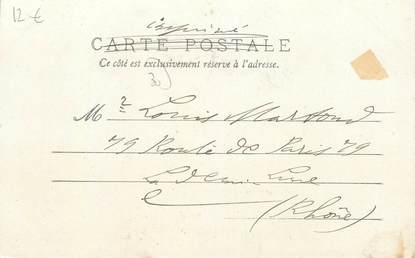 12 €
imprimé
CARTE POSTALE
Ce côté est exclusivement réservé à l'adresse.
30
Mr Louis
79 Route de Paris 79
La
(Rhône)